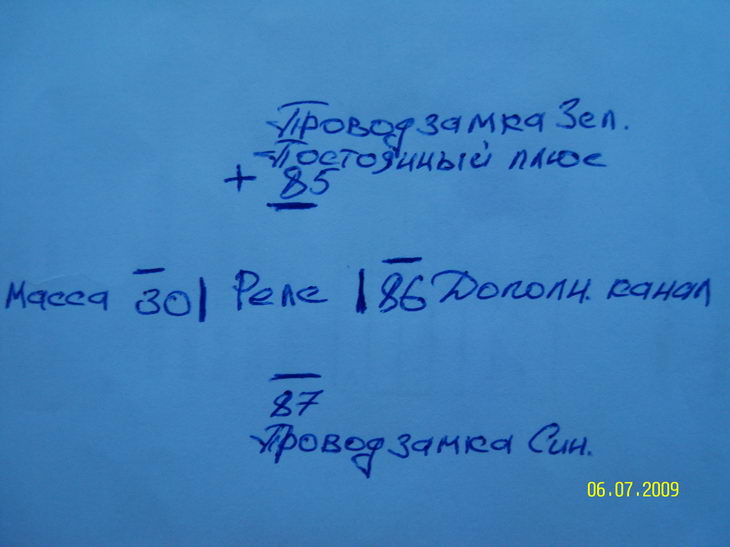 Провод замка Зел.
Постоянный плюс
+ 85
Масса 30 | Реле | 86 Дополн. канал
87
Провод замка Син.
06.07.2009